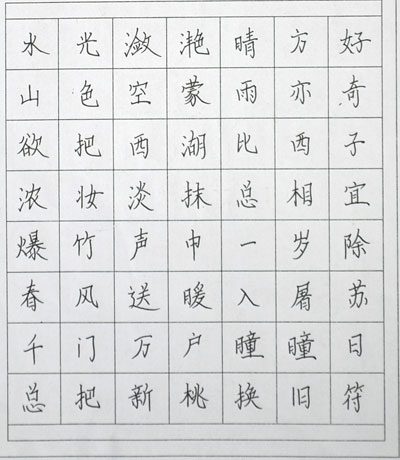 水光潋滟晴方好
山色空蒙雨亦奇
欲把西湖比西子
浓妆淡抹总相宜
爆竹声中一岁除
春风送暖入屠苏
千门万户曈曈日
总把新桃换旧符